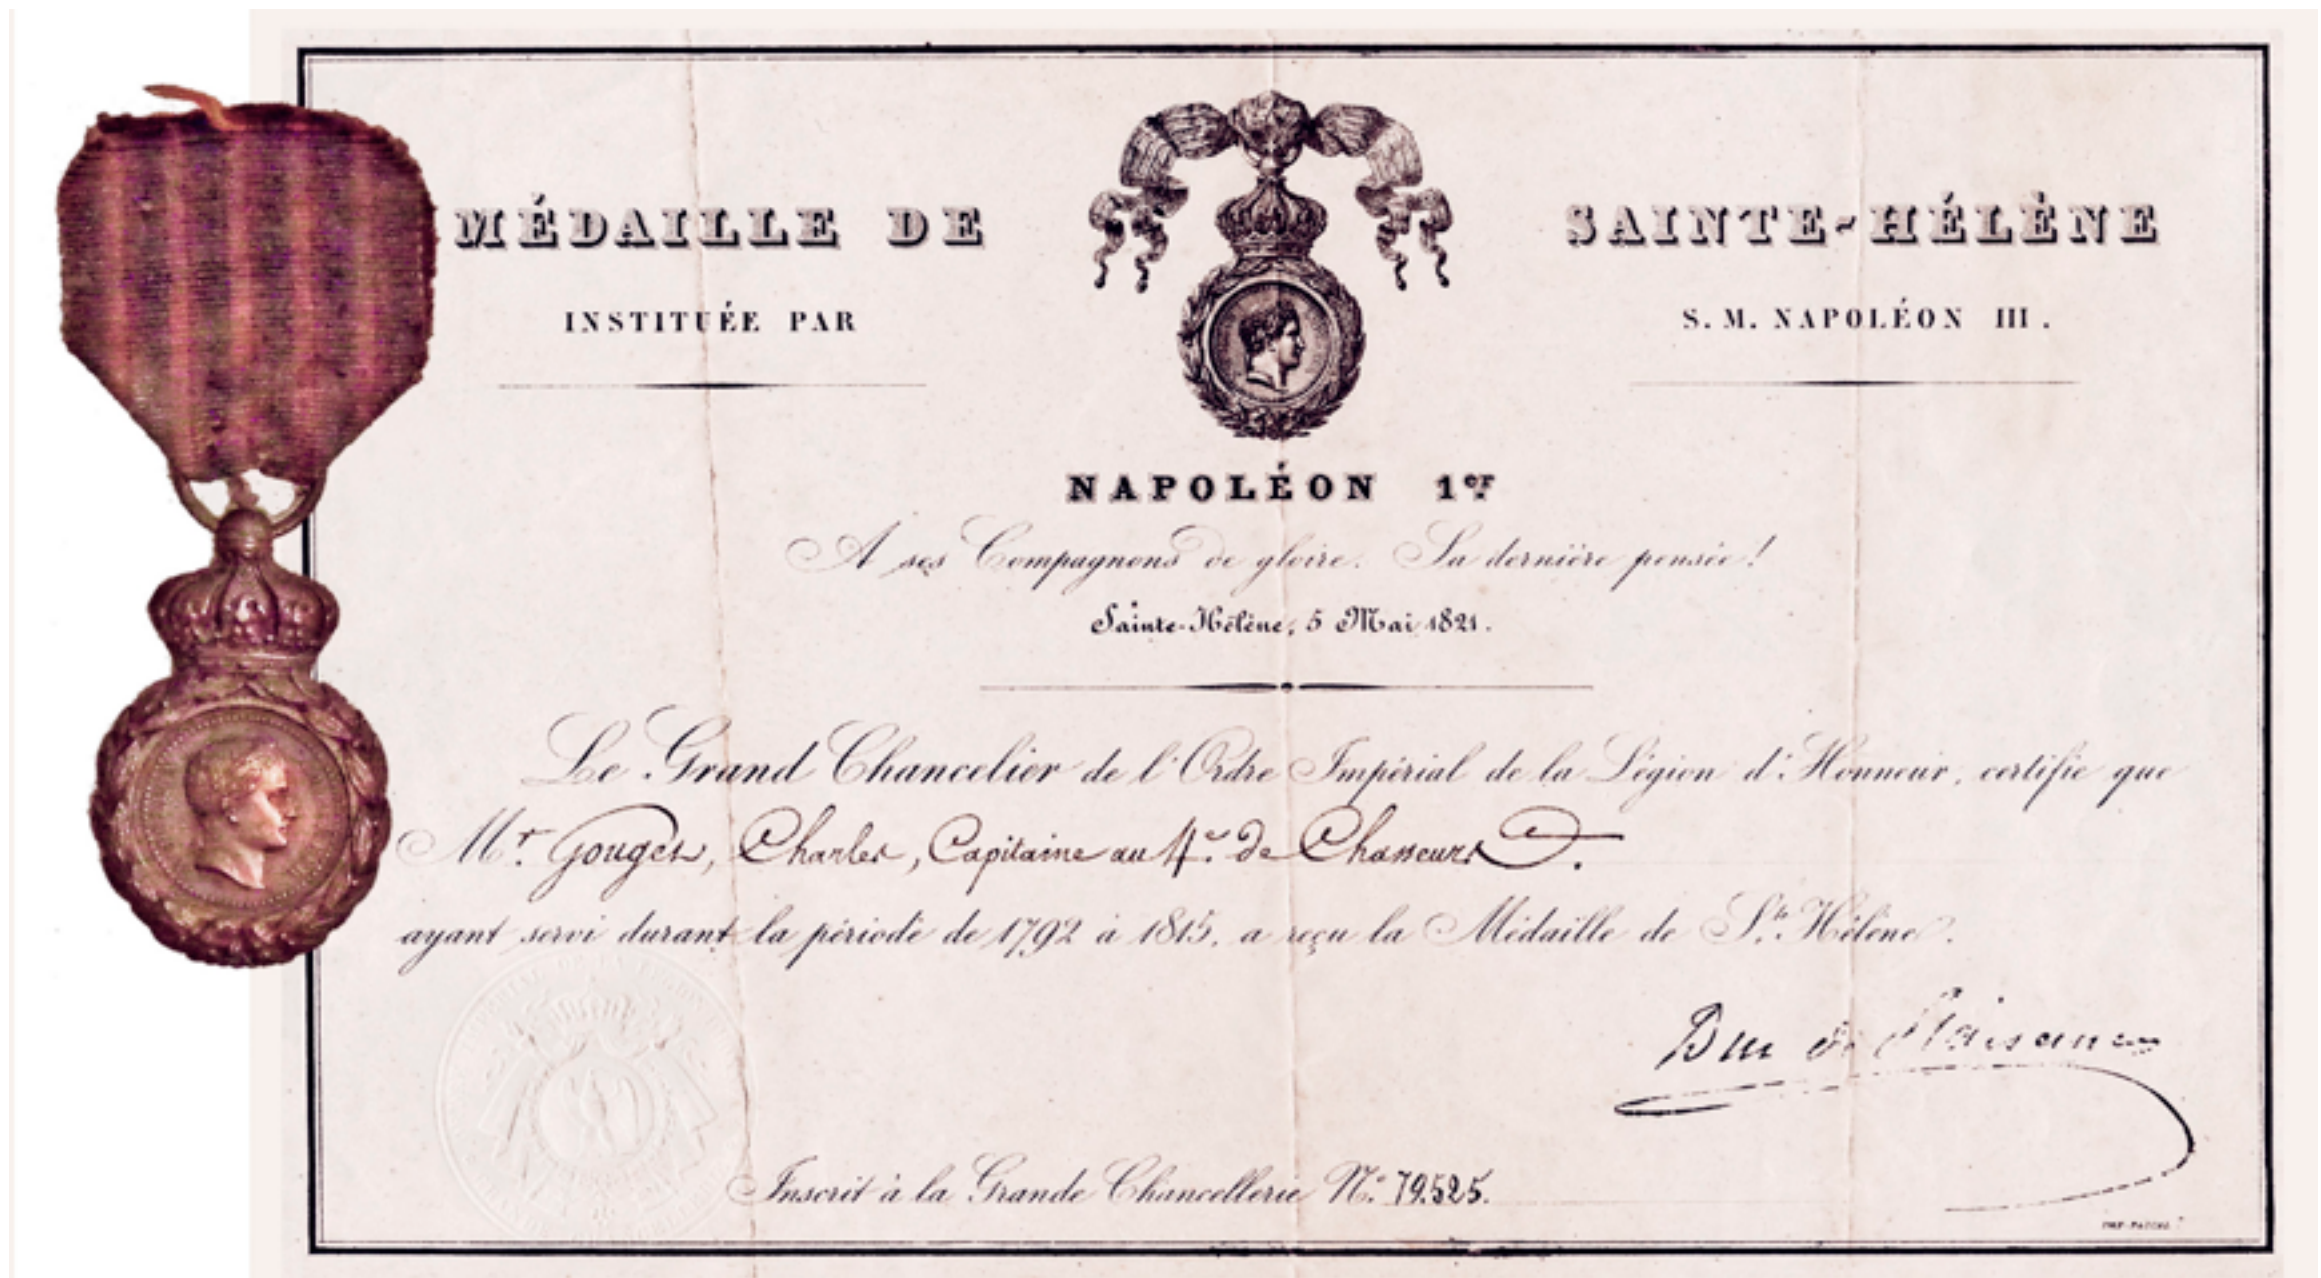 MÉDAILLE DE SAINTE-HÉLÈNE
INSTITUÉE PAR S. M. NAPOLÉON III.
NAPOLÉON 1er
A ses Compagnons de gloire. Sa dernière pensée!
Sainte-Hélène, 5 Mai 1821.
Le Grand Chancelier de l'Ordre Impérial de la Légion d'Honneur, certifie que
Mr. Gouges, Charles, Capitaine au 4e. de Chasseurs
ayant servi durant la période de 1792 à 1815, a reçu la Médaille de Ste. Hélène.
Duc de Plaisance
Inscrit à la Grande Chancellerie No. 79.525.